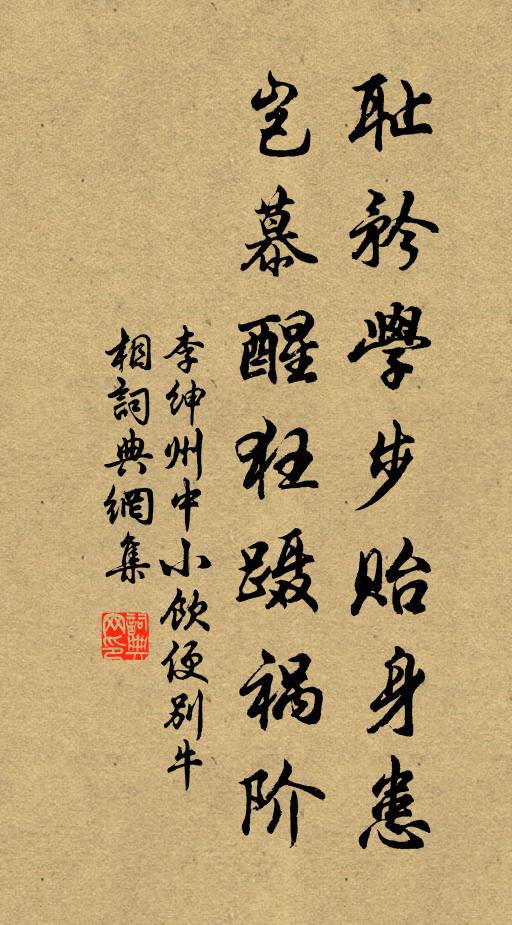 耻矜學步貽身患
岂慕醒狂蹑祸阶
李绅州中小飲便别牛
相詞典網集
詞典网印